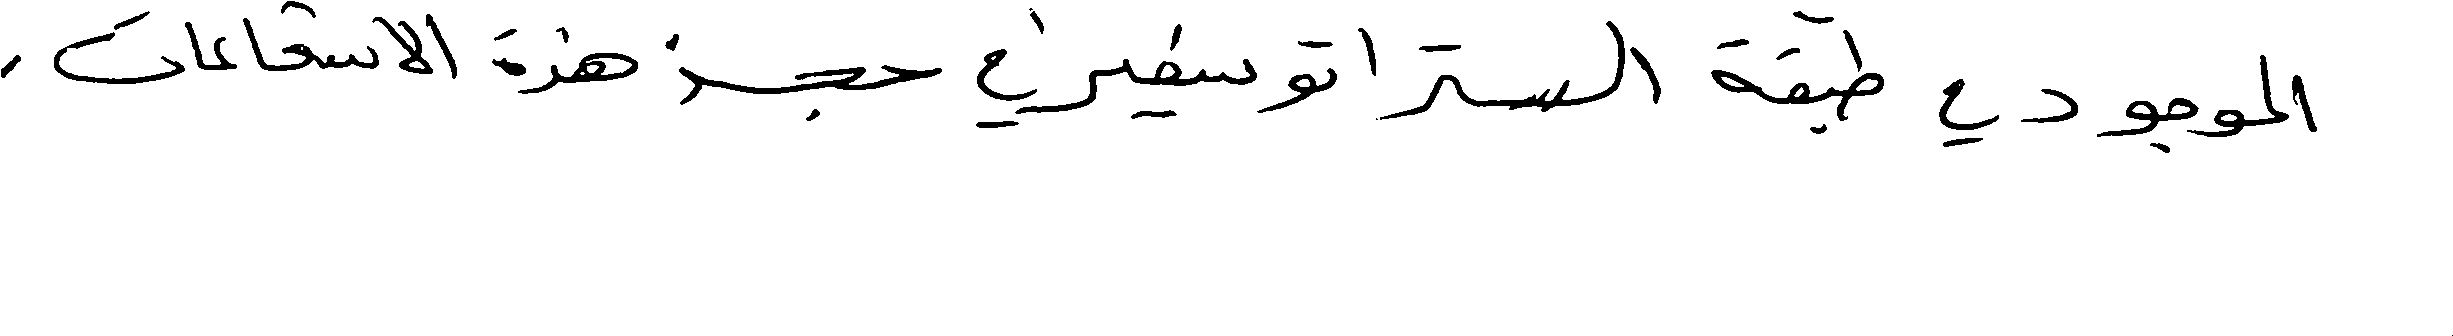 الموجود في طبقة الستراتوسفير في حجز هذة الاشعاعات .